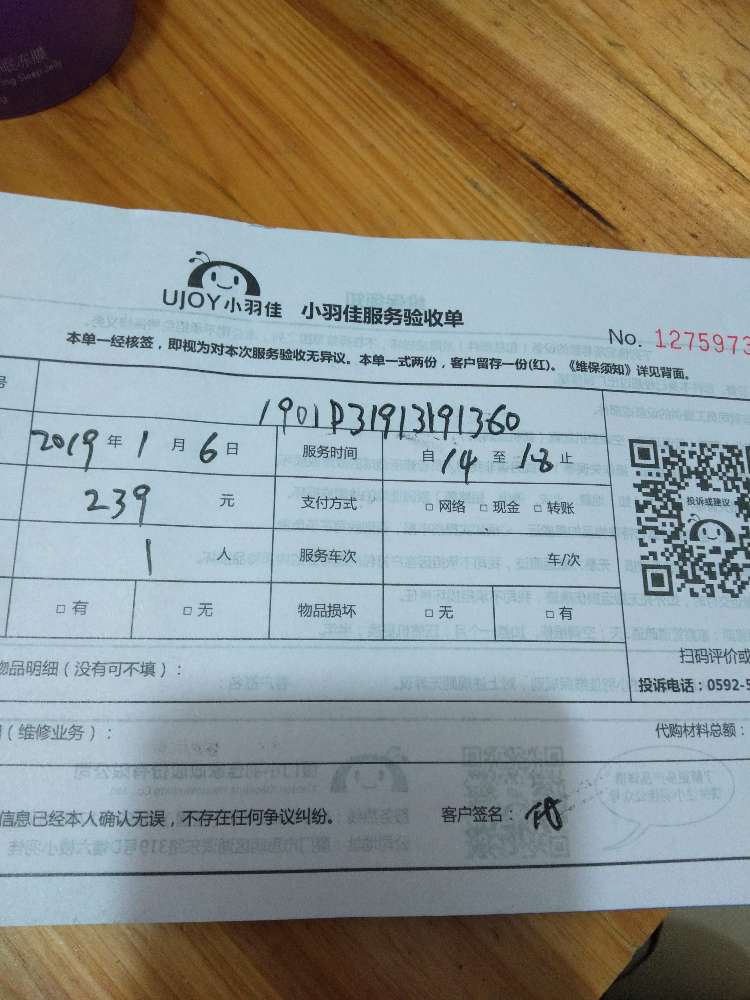 ing Sleep Jelly
UJOY小羽佳 小羽佳服务验收单
No. 1275973
本单一经核签，即视为对本次服务验收无异议。本单一式两份，客户留存一份(红)。《维保须知》详见背面。
号
1901P31913191360
2019 年 1 月 6 日 服务时间 自 14 至 18 止
239 元 支付方式 □ 网络 □ 现金 □ 转账
投诉或建议
1 人 服务车次 车/次
□ 有 □ 无 物品损坏 □ 无 □ 有
扫码评价或
物品明细（没有可不填）：
投诉电话：0592-5
（维修业务）： 代购材料总额：
信息已经本人确认无误，不存在任何争议纠纷。 客户签名：